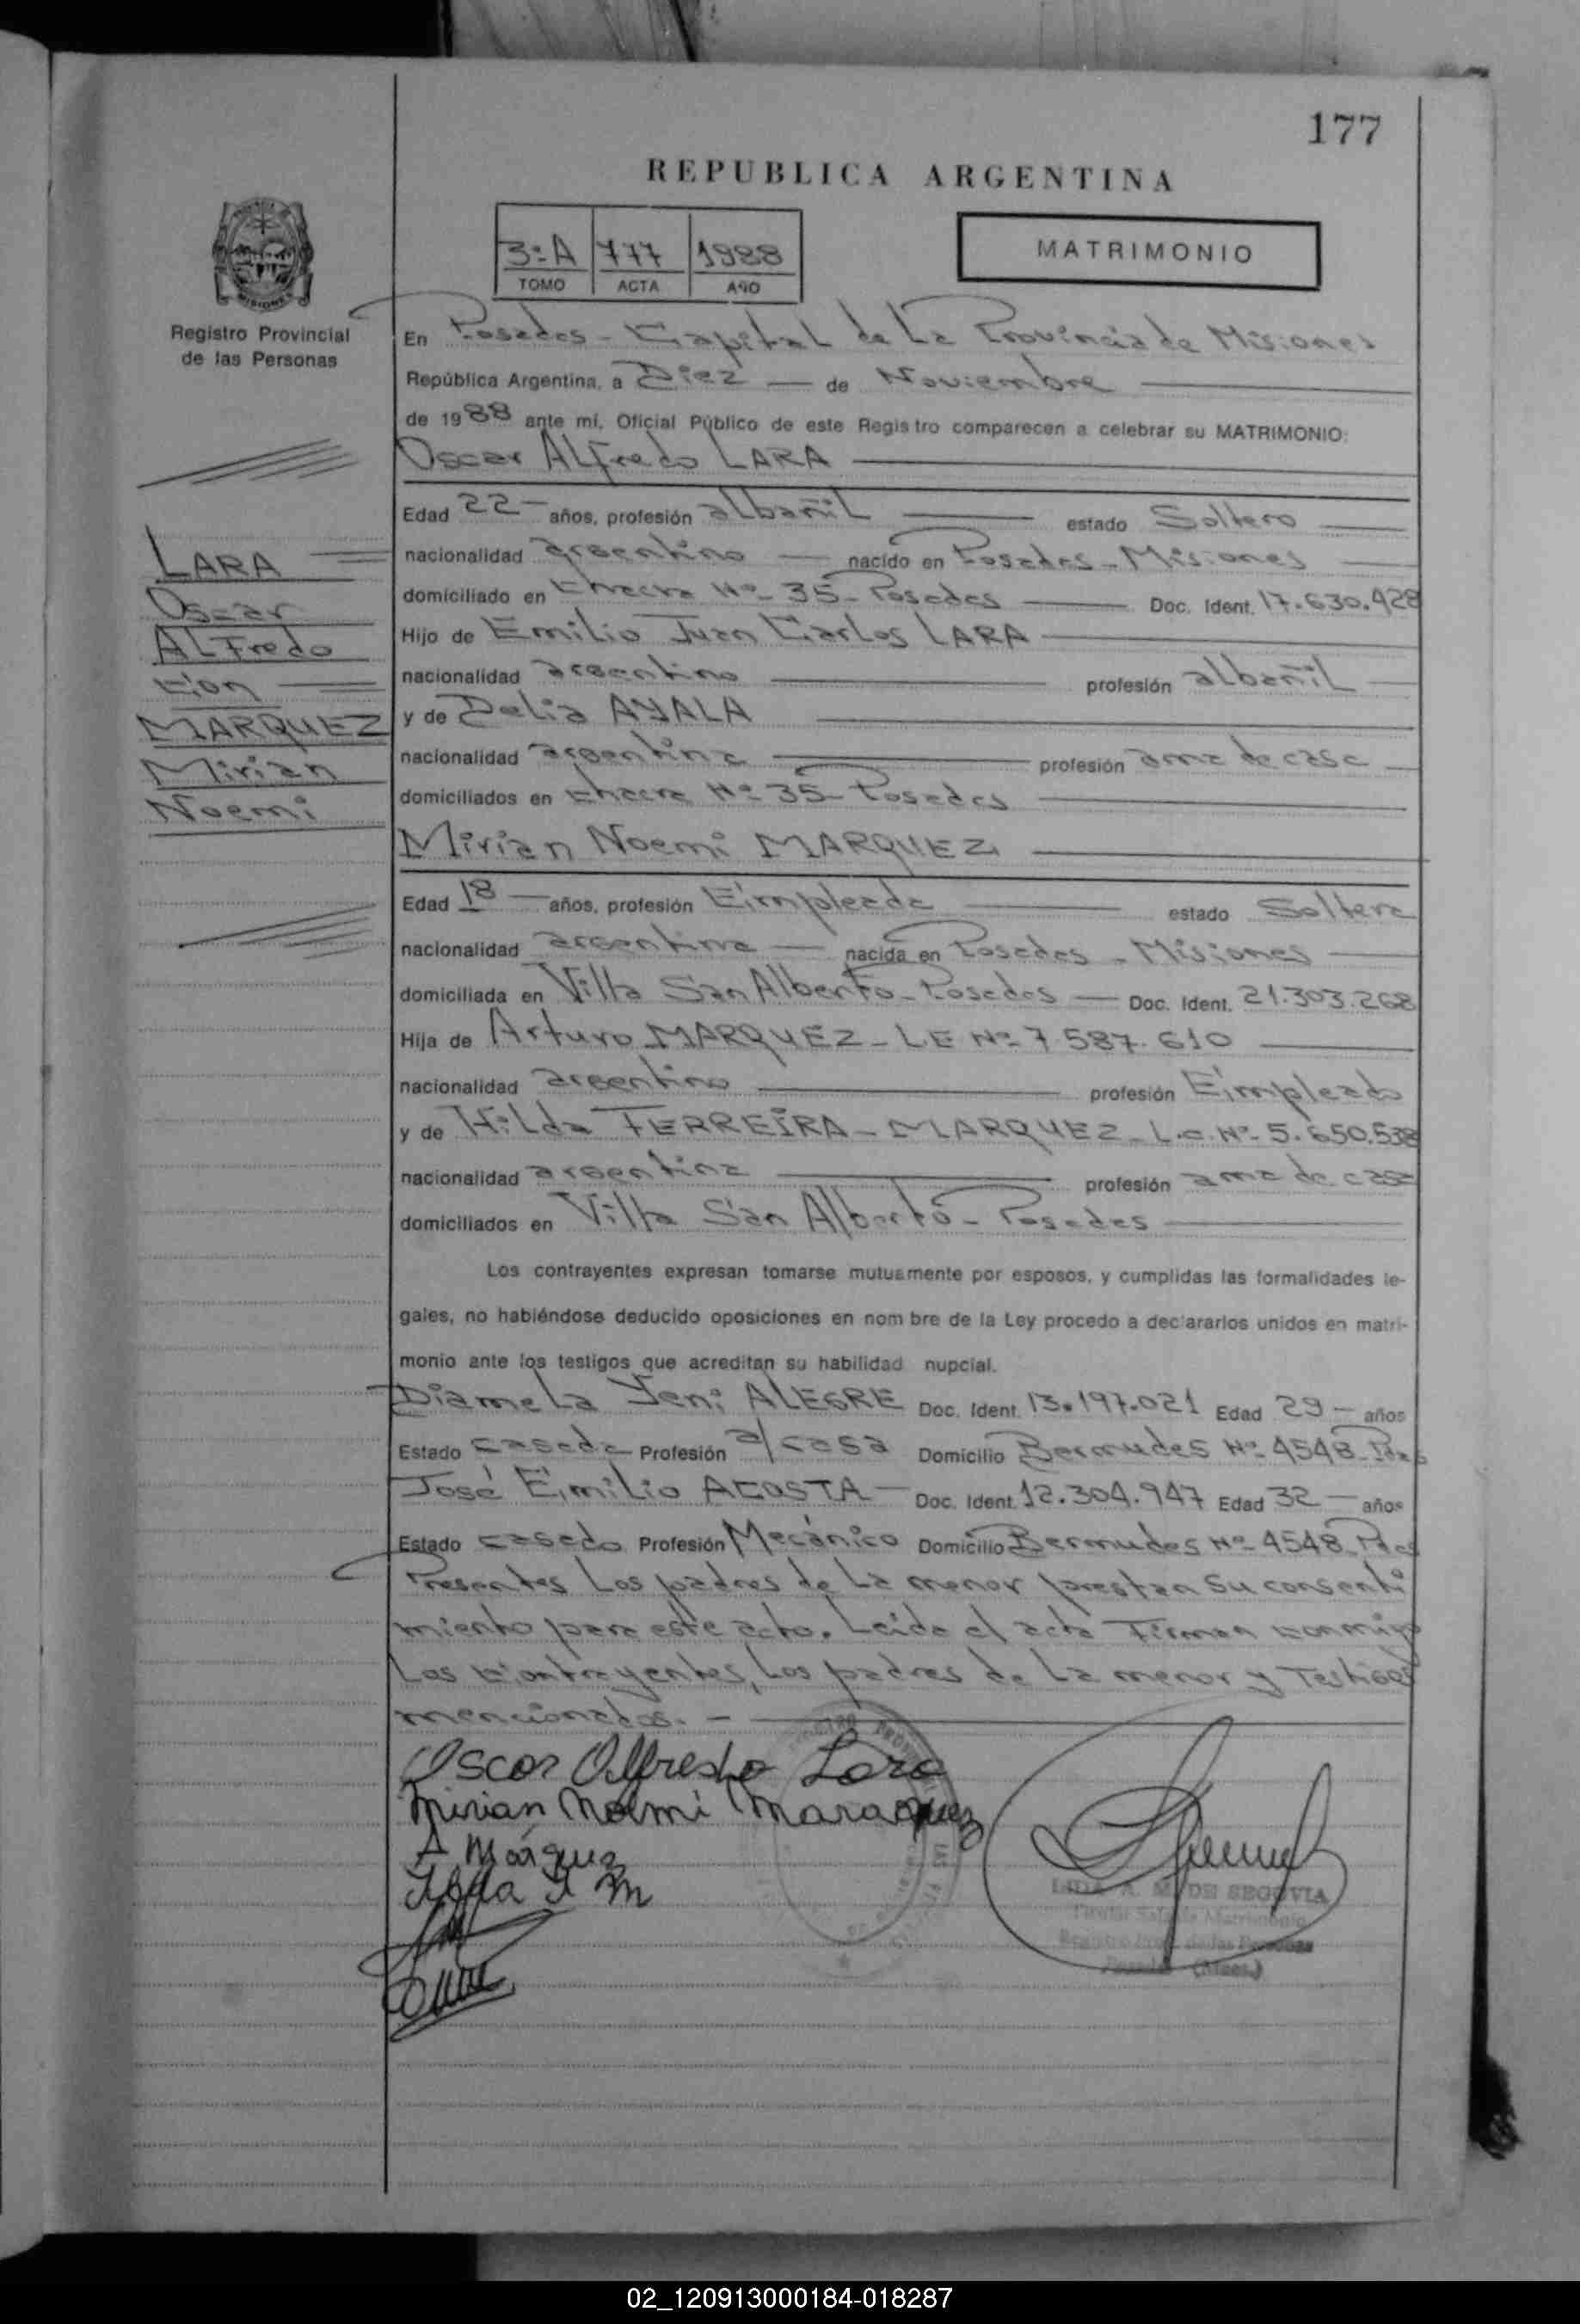 177
REPUBLICA ARGENTINA
3:A 777 1988
TOMO ACTA AÑO
MATRIMONIO
PROVINCIA
MISIONES
Registro Provincial
de las Personas
En Posadas - Capital de La Provincia de Misiones
República Argentina, a Diez — de Noviembre
de 1988 ante mí, Oficial Público de este Registro comparecen a celebrar su MATRIMONIO:
Oscar ALfredo LARA
Edad 22 años, profesión albañiL estado Soltero
nacionalidad argentino nacido en Posadas - Misiones
domiciliado en Chacra Nº 35 - Posadas Doc. Ident. 17.630.428
Hijo de Emilio Juan Carlos LARA
nacionalidad argentino profesión albañiL
y de Delia AYALA
nacionalidad argentina profesión ama de casa
domiciliados en Chacra Nº 35 - Posadas
Mirian Noemi MARQUEZ
Edad 18 años, profesión Empleada estado Soltera
nacionalidad argentina nacida en Posadas - Misiones
domiciliada en Villa San Alberto - Posadas Doc. Ident. 21.303.268
Hija de Arturo MARQUEZ - L.E Nº 7.587.610
nacionalidad argentino profesión Empleado
y de HiLda FERREIRA - MARQUEZ - L.C. Nº 5.650.538
nacionalidad argentina profesión ama de casa
domiciliados en Villa San Alberto - Posadas
Los contrayentes expresan tomarse mutuamente por esposos, y cumplidas las formalidades le-
gales, no habiéndose deducido oposiciones en nombre de la Ley procedo a declararlos unidos en matri-
monio ante los testigos que acreditan su habilidad nupcial.
Diamela Yeni ALEGRE Doc. Ident. 13.197.021 Edad 29 años
Estado casada Profesión a/casa Domicilio Bermudes Nº 4548 - Pdas
José Emilio ACOSTA Doc. Ident. 12.304.947 Edad 32 años
Estado casado Profesión Mecánico Domicilio Bermudes Nº 4548 - Pdas
Presentes Los padres de La menor prestan su consenti
miento para este acto. Leída el acta Firman conmigo
Los Contrayentes, Los padres de La menor y Testigos
mencionados. -
LARA
Oscar
ALFredo
Con
MARQUEZ
Mirian
Noemi
Oscar Alfredo Lara
Mirian Noemi Maraquez
A Márquez
Ilda F M
LIDA A. M. DE SEGOVIA
Titular Sala de Matrimonio
Registro Prov. de las Personas
Posadas (Mnes.)
02_120913000184-018287